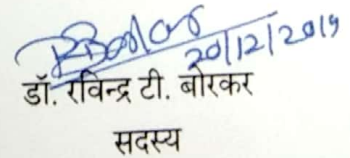 20/12/2019
डॉ. रविन्द्र टी. बोरकर
सदस्य